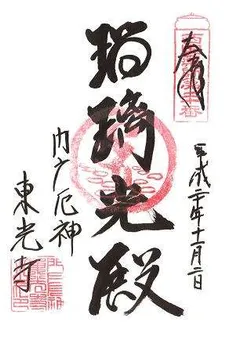 奉拝
平成二十年十一月二日
瑠璃光殿
門戸厄神
東光寺